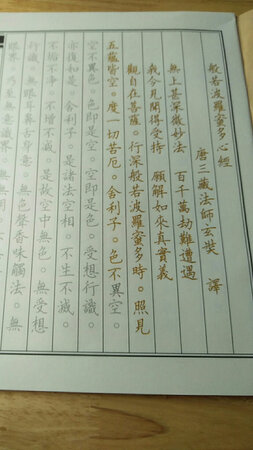 般若波羅蜜多心經
唐三藏法師玄奘 譯
無上甚深微妙法 百千萬劫難遭遇
我今見聞得受持 願解如來真實義
觀自在菩薩。行深般若波羅蜜多時。照見
五蘊皆空。度一切苦厄。舍利子。色不異空。
空不異色。色即是空。空即是色。受想行識。
亦復如是。舍利子。是諸法空相。不生不滅。
不垢不淨。不增不減。是故空中無色。無受想
行識。無眼耳鼻舌身意。無色聲香味觸法。無
眼界。乃至無意識界。無無